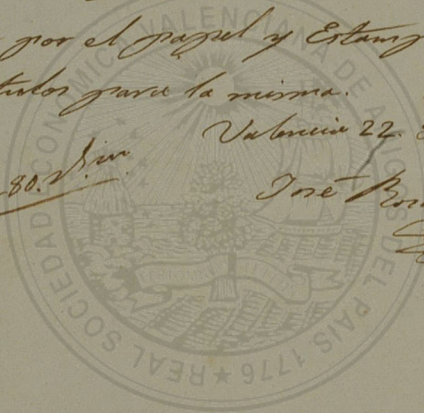 por el papel y Estamp
tulos para la misma.
Valencia 22.
80. Rvn
José
REAL SOCIEDAD ECONÓMICA VALENCIANA DE AMIGOS DEL PAIS 1776